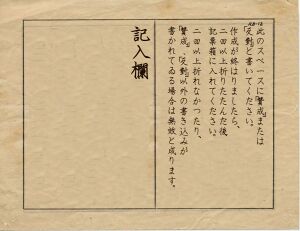 此のスペースに「賛成」または
「反対」と書いてください。
作成が終はりましたら、
二回以上折りたたんだ後、
記票箱に入れてください。
二回以上折れなかつたり、
「賛成」、「反対」以外の書き込みが
書かれてゐる場合は無效と成ります。
記入欄